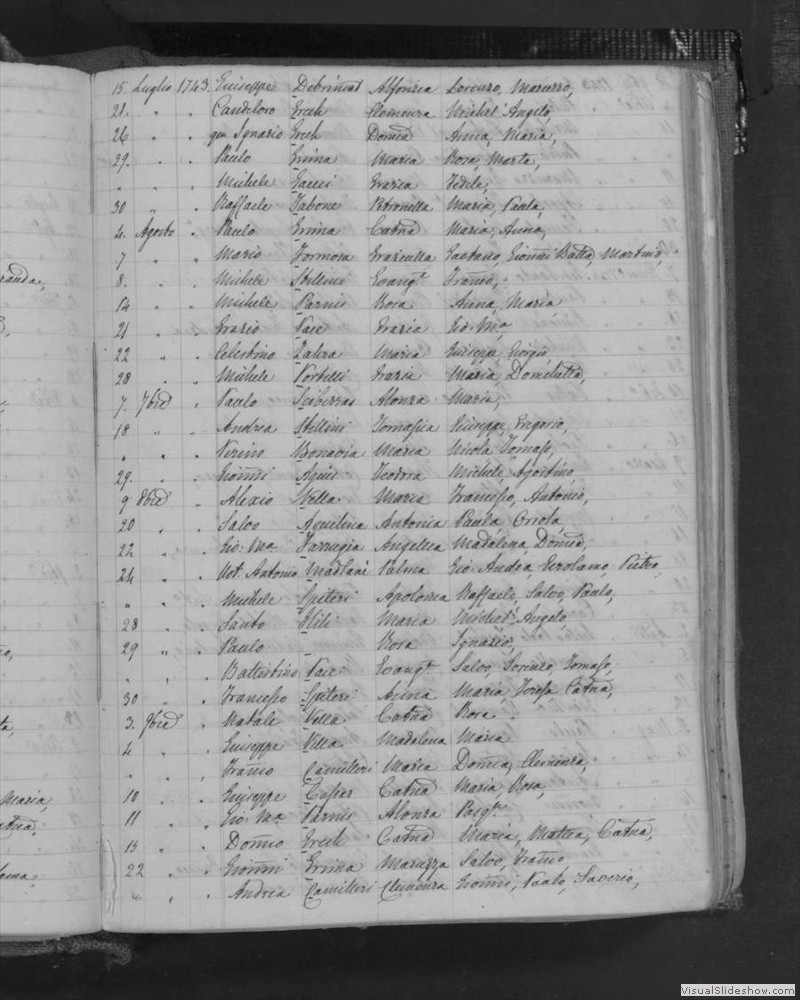 15 Luglio 1743. Giuseppe Debrincat Alfonsa Lorenzo, Maruzzo,
21. " . Candiloro Grech Eleonora Michel' Angelo,
26 " . qm Ignazio Grech Domca Anna, Maria,
29. " . Paulo Grima Maria Rosa, Marta,
" " . Michele Gauci Grazia Fedele,
30 " . Raffaele Tabone Petronella Maria, Paula,
4. Agosto . Paulo Grima Catna Maria, Anna,
7 " . Mario Formosa Graziulla Gaetano, Gionni Batta, Martino,
8. " . Michele Stellini Evangta Franco,
14 " . Michele Parnis Rosa Anna, Maria
21 " . Grazio Pace Grazia Gio Ma
22 " . Celestino Galea Maria Giuseppe, Giorgio
28 " . Michele Portelli Grazia Maria, Domenica,
7. 7bre . Paulo Sciberras Alonza Maria,
18 " . Andrea Stellini Tomasica Giuseppe, Gregorio,
" " . Pirino Bonavia Maria Nicola, Tomaso,
29. " . Gionni Agius Teodora Michele, Agostino,
9 8bre . Alexio Vella Maria Francesco, Antonio,
20 " . Salvo Aquilina Antonia Paula, Oriola,
22 " . Gio. Ma. Farrugia Angelica Madalena, Domca,
24 " . Not. Antonio Madlanè Palma Gio. Andea, Girolamo, Pietro,
" " . Michele Spiteri Apolonia Raffaele, Salvo, Paulo,
28 " . Santo Hili Maria Michel' Angelo
29 " . Paulo " Rosa Ignazio,
" " . Battistino Pace Evangta Salvo, Lorenzo, Tomaso,
30 " . Francesco Spiteri Anna Maria, Teresa, Catna,
3. 9bre . Natale Vella Catna Rosa
4 " . Giuseppe Vella Madalena Maria
" " . Franco Camilleri Maria Domca, Clemenza,
10 " . Giuseppe Catna Maria, Rosa,
11 " . Gio. Ma Parnis Alonza Pasqle
13 " . Domco Grech Catna Maria, Mattia, Catna,
22 " . Gionni Grima Maruzza Salvo, Franco
" " . Andrea Camilleri Clemenza Gionni, Paolo, Saverio,
randa,
Maria,
VisualSlideshow.com